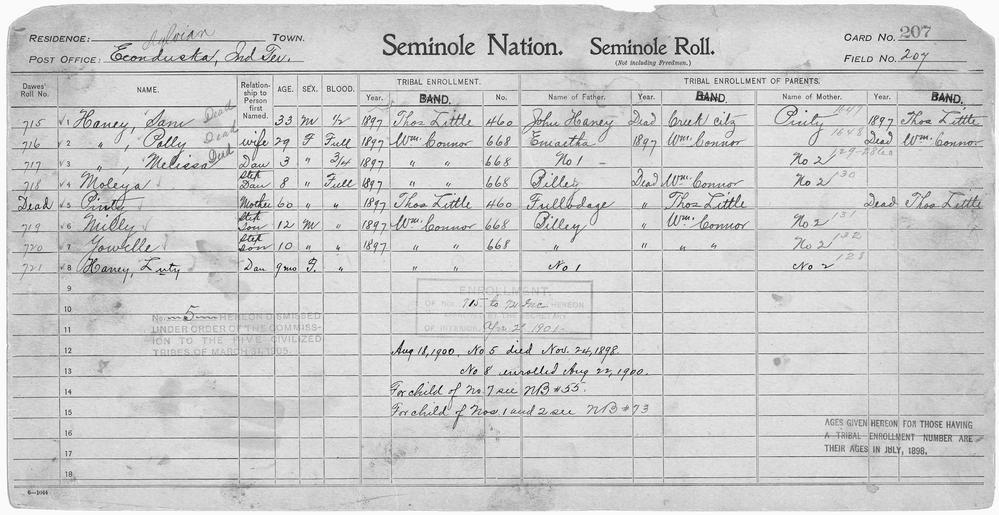 RESIDENCE: TOWN.
POST OFFICE: Econduska, Ind Ter.
Seminole Nation. Seminole Roll.
(Not including Freedmen.)
CARD NO. 207
FIELD NO. 207
Dawes' Roll No. NAME. Relationship to Person first Named. AGE. SEX. BLOOD. TRIBAL ENROLLMENT. TRIBAL ENROLLMENT OF PARENTS.
Year. BAND. No. Name of Father. Year. BAND. Name of Mother. Year. BAND.
715 √ 1 Haney, Sam Dead 33 M 1/2 1897 Thos Little 460 John Haney Dead Creek Citz Pinty 1897 Thos Little
716 √ 2 " , Polly Dead wife 29 F Full 1897 Wm. Connor 668 Emartha 1897 Wm. Connor 1648 Dead Wm. Connor
717 √ 3 " , Melissa Dead Dau 3 " 3/4 1897 " " 668 No 1 No 2
718 √ 4 Moleya Step Dau 8 " Full 1897 " " 668 Billey Dead Wm. Connor No 2 130
Dead √ 5 Pinty Mother 60 " " 1897 Thos Little 460 Fullodage " Thos Little Dead Thos Little
719 √ 6 Milly Step Son 12 M " 1897 Wm. Connor 668 Billey " Wm. Connor No 2 131
720 √ 7 Yowelle Step Son 10 " " 1897 " " 668 " " " " No 2 132
721 √ 8 Haney, Luty Dau 9mo F. " " " No 1 No 2 128
9
10
11
12
13
14
15
16
17
18
ENROLLMENT
OF NOS. 715 to 721 Inc HEREON
APPROVED BY THE SECRETARY
OF INTERIOR Apr 2 1901
No. 5 HEREON DISMISSED
UNDER ORDER OF THE COMMISS-
ION TO THE FIVE CIVILIZED
TRIBES OF MARCH 31, 1905.
Aug 18, 1900, No 5 died Nov. 24, 1898.
No 8 enrolled Aug 22, 1900.
For child of No. 7 see NB #55.
For child of Nos. 1 and 2 see NB #73
AGES GIVEN HEREON FOR THOSE HAVING
A TRIBAL ENROLLMENT NUMBER ARE
THEIR AGES IN JULY, 1898.
6—1044